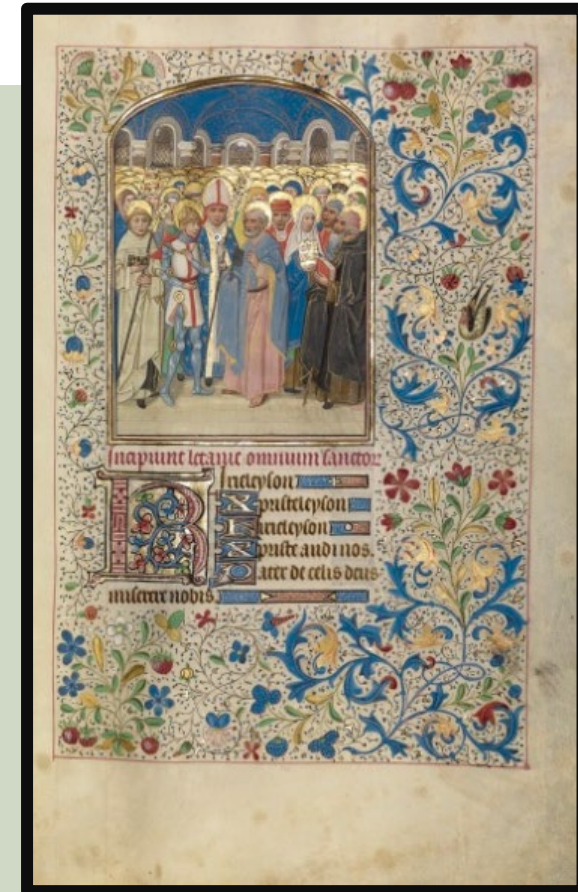 Incipiunt letanie omnium sanctor
Kirieleyson
Xpristeleyson
Kirieleyson
Xpriste audi nos.
Pater de celis deus
miserere nobis